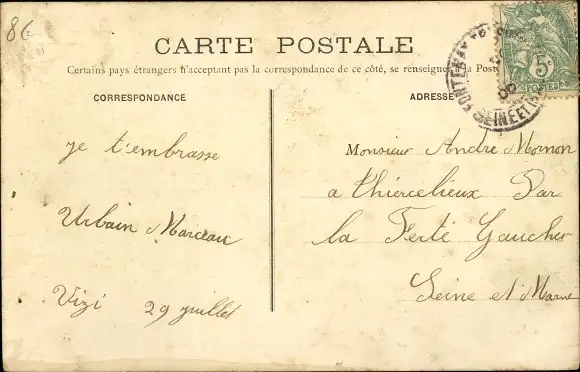 86
CARTE POSTALE
Certains pays étrangers n'acceptant pas la correspondance de ce côté, se renseigner à la Poste
CORRESPONDANCE
je t'embrasse
Urbain Marceau
Vizi 29 juillet
ADRESSE
Monsieur Andre Mornon
a Thiercelieux Par
la Ferté Gaucher
Seine et Marne
5c
POSTES
FONTENAY
SEINE ET